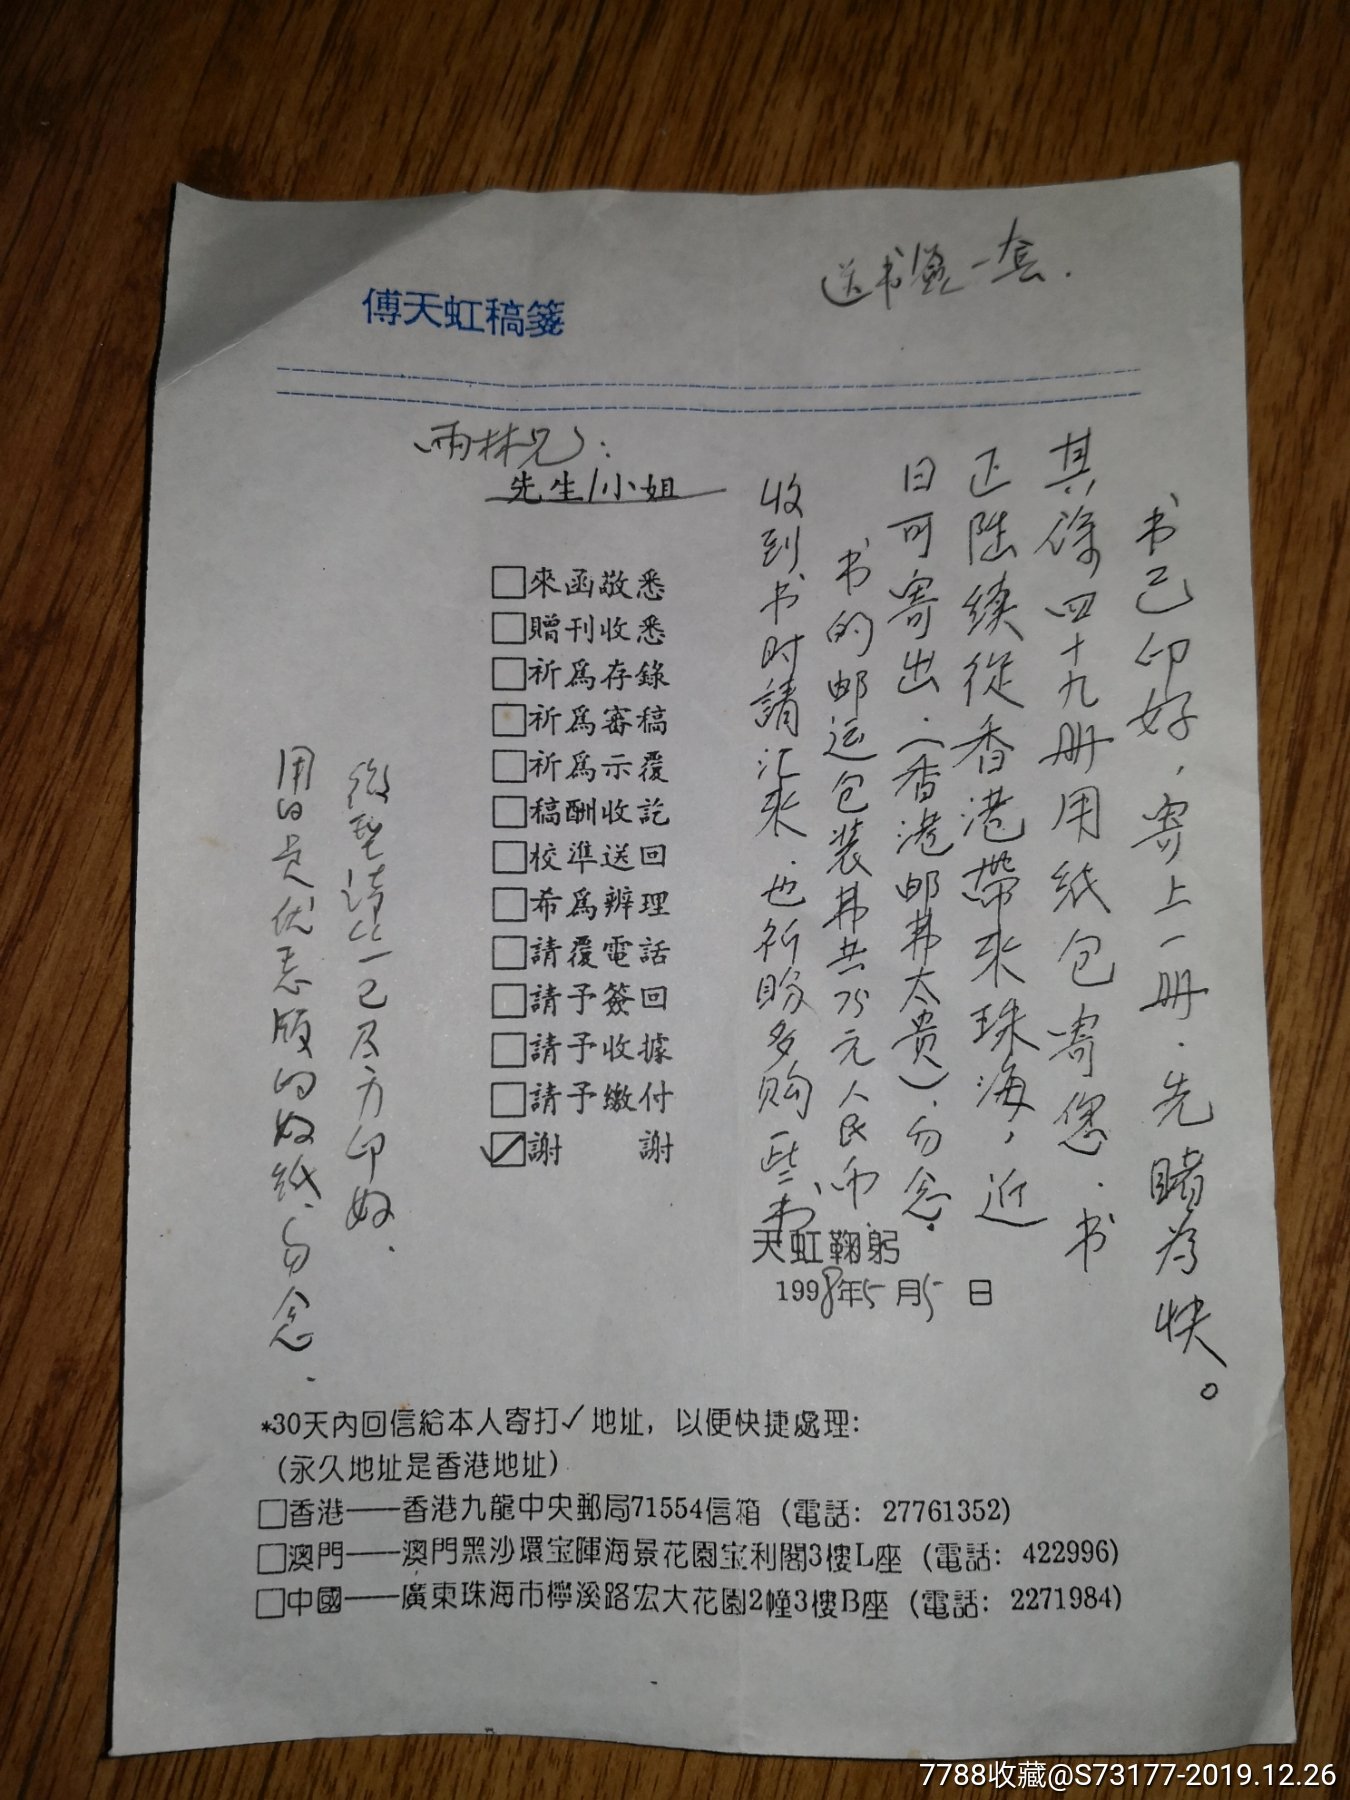 送书签一套.
傅天虹稿箋
雨林兄:
先生/小姐
书已印好，寄上一册.先睹为快。
其馀四十九册用纸包寄您.书
正陆续從香港帶来珠海，近
日可寄出.（香港邮费太贵）.勿念.
书的邮运包装费共75元人民币.
收到书时請汇来.也祈盼多购些书.
□來函敬悉
□贈刊收悉
□祈為存錄
□祈為審稿
□祈為示覆
□稿酬收訖
□校準送回
□希為辦理
□請覆電話
□請予簽回
□請予收據
□請予繳付
☑謝 謝
天虹鞠躬
1998年5月5日
一已尽力印好.
用的是优惠版的好纸.勿念.
*30天內回信給本人寄打✓地址，以便快捷處理：
（永久地址是香港地址）
□香港——香港九龍中央郵局71554信箱（電話：27761352）
□澳門——澳門黑沙環宝暉海景花園宝利閣3樓L座（電話：422996）
□中國——廣東珠海市檸溪路宏大花園2幢3樓B座（電話：2271984）
7788收藏@S73177-2019.12.26